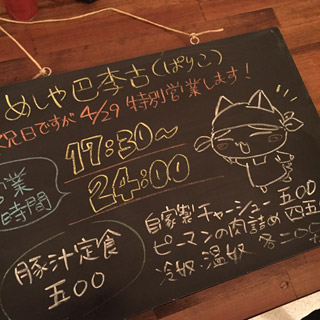 めしや 巴李古(ぱりこ)
祝日ですが 4/29 特別営業します!
営業時間
17:30〜
24:00
豚汁定食
五〇〇
自家製チャーシュー 五〇〇
ピーマンの肉詰め 四五〇
冷奴、温奴 各二〇〇